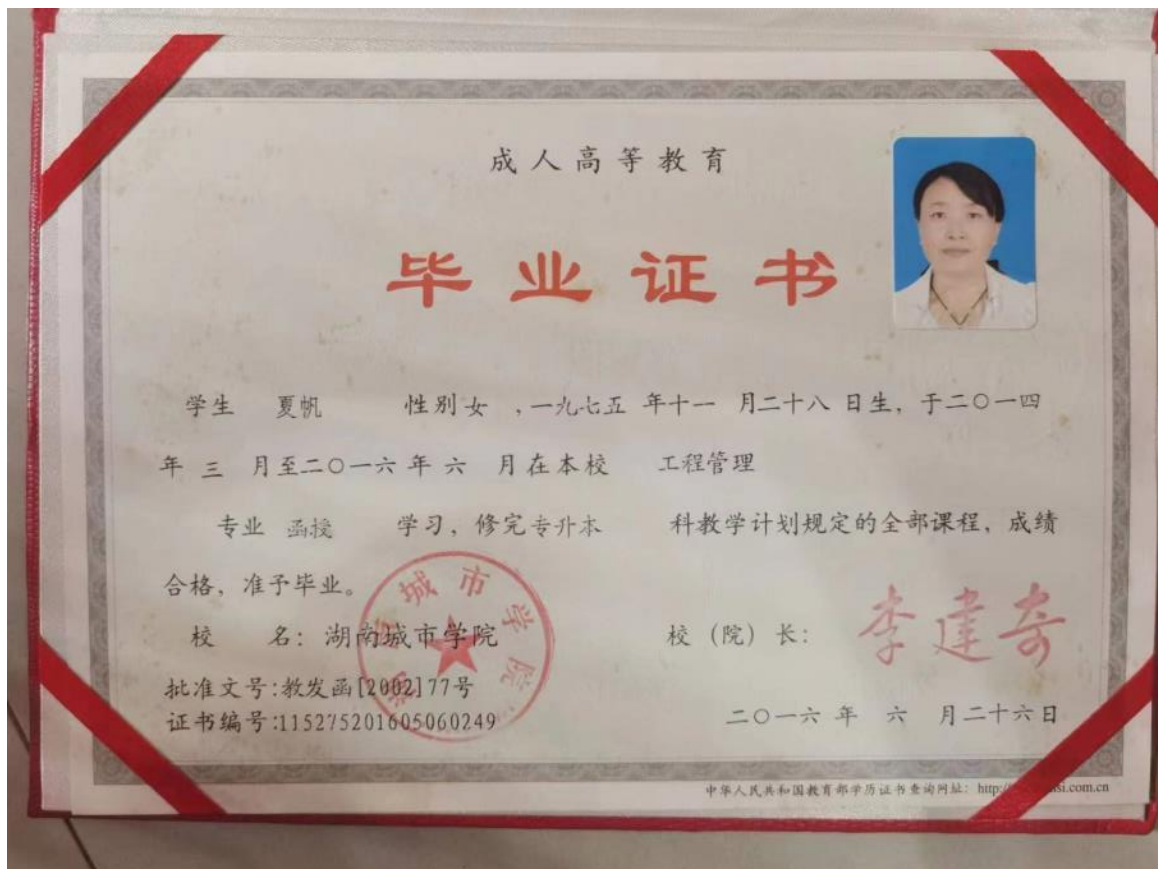 成人高等教育
毕业证书
学生 夏帆 性别女 ,一九七五 年十一 月二十八 日生，于二〇一四
年 三 月至二〇一六 年 六 月在本校 工程管理
专业 函授 学习，修完专升本 科教学计划规定的全部课程，成绩
合格，准予毕业。
校 名：湖南城市学院 校（院）长： 李建奇
批准文号:教发函[2002]77号
证书编号:115275201605060249 二〇一六 年 六 月二十六日
城市学院
中华人民共和国教育部学历证书查询网址：http:/ si.com.cn